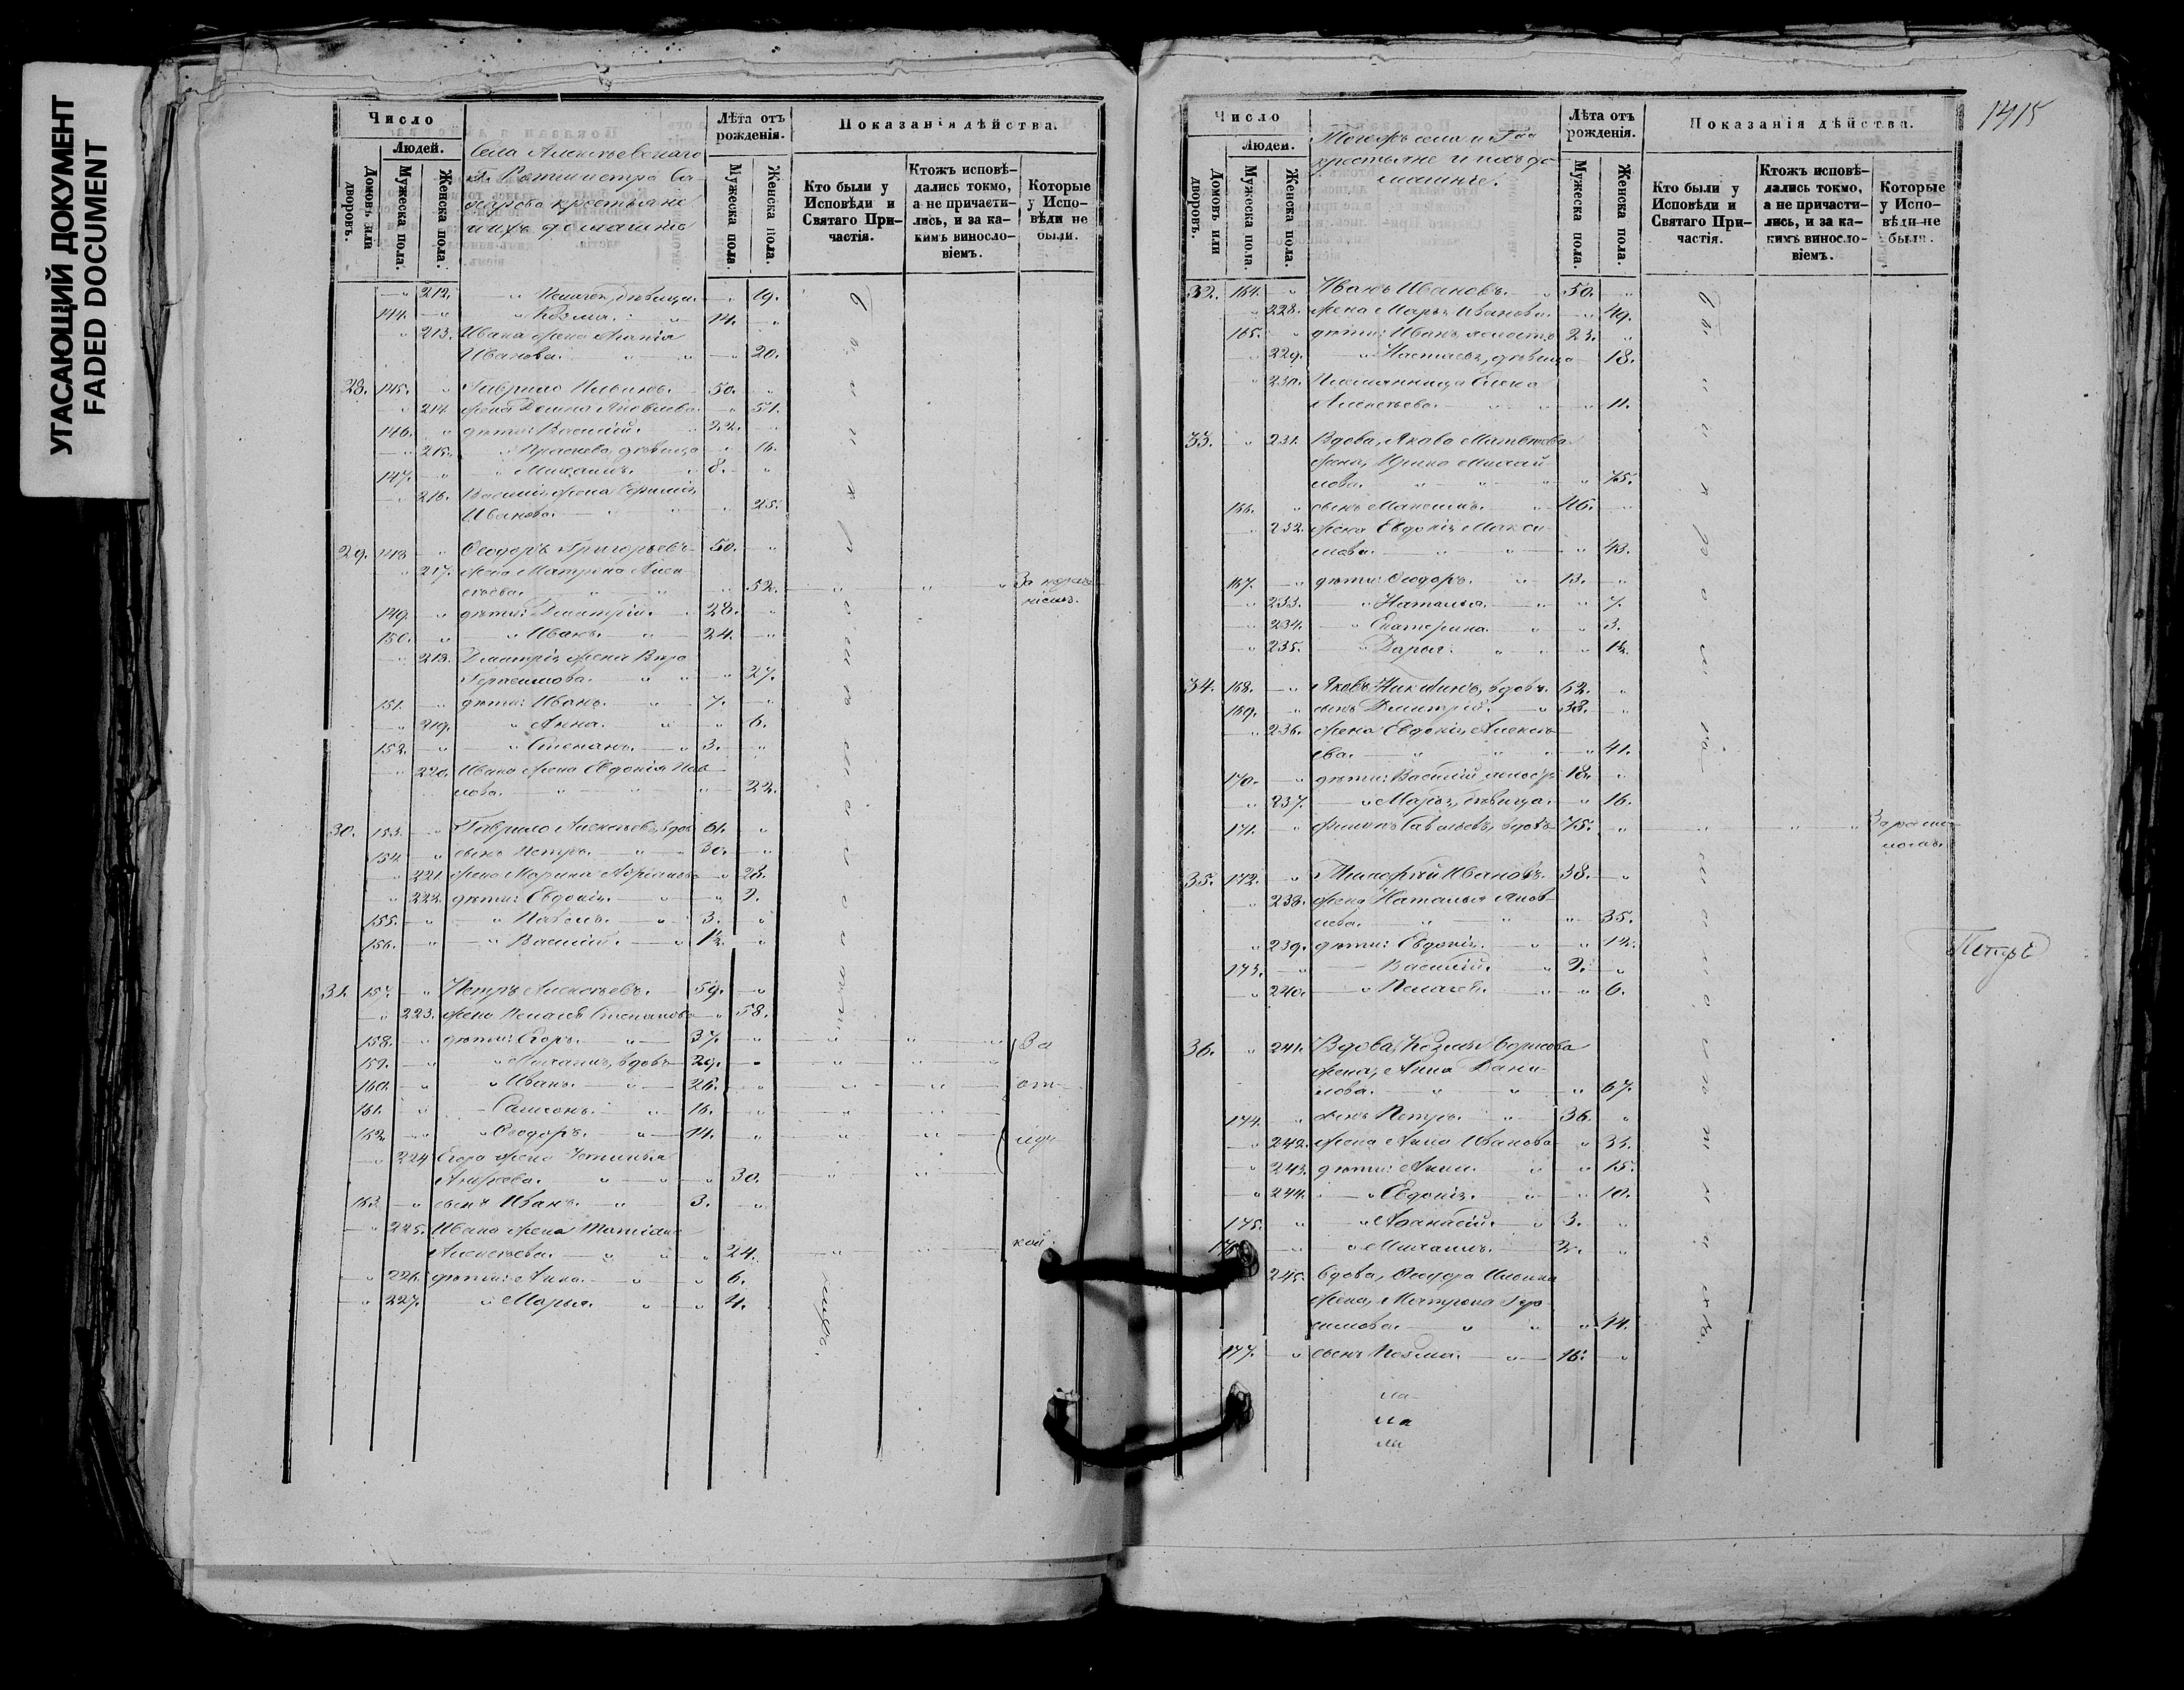 УГАСАЮЩИЙ ДОКУМЕНТ
FADED DOCUMENT
Число
Людей.
Домовъ или дворовъ.
Мужеска пола.
Женска пола.
Села Алексѣевскаго
крестьяне
ихъ домашніе
Лѣта отъ рожденія.
Мужеска пола.
Женска пола.
Показанія дѣйства.
Кто были у Исповѣди и Святаго Причастія.
Ктожъ исповѣдались токмо, а не причастились, и за какимъ винословіемъ.
Которые у Исповѣди не были.
212. Пелагея, дѣвица. 19.
144. Козма. 14.
213. Ивана жена
Иванова. 20.
28. 145. Гаврило 50.
214. жена Домна Яковлева 51.
146. дѣти: Василій. 22.
215. дѣвица 16.
147. Михаилъ. 8.
216. Василія жена
Иванова. 25.
29. 148. Ѳеодоръ Григорьевъ 50.
217. жена Матрена Алек
сѣева. 52.
149. дѣти: Дмитрій. 28.
150. Иванъ. 24.
218. Дмитрія жена Вѣра
Герасимова. 27.
151. дѣти: Иванъ. 7.
219. Анна. 6.
152. Степанъ. 3.
220. Ивана жена Евдокія Пав
лова. 22.
30. 153. Гаврило Алексѣевъ, вдов 61.
154. сынъ Петръ. 30.
221. жена Марина 28.
222. дѣти: Евдокія.
155. Павелъ. 3.
156. Василій. 1½.
31. 157. Петръ Алексѣевъ. 59.
223. жена Пелагея Степанова 58.
158. дѣти: Егоръ. 37. За
159. Михаилъ, вдовъ 29.
160. Иванъ. 26. от
161. Самсонъ. 16.
162. Ѳеодоръ. 14. луч
224. Егора жена Устинья
Андреева. 30.
163. сынъ Иванъ. 3.
225. Ивана жена Татіана
Алексѣева. 24. кой.
226. дѣти: Анна. 6.
227. Марья. 4.
1415
Число
Людей.
Домовъ или дворовъ.
Мужеска пола.
Женска пола.
Тогожъ села и
крестьяне и ихъ до
машніе.
Лѣта отъ рожденія.
Мужеска пола.
Женска пола.
Показанія дѣйства.
Кто были у Исповѣди и Святаго Причастія.
Ктожъ исповѣдались токмо, а не причастились, и за какимъ винословіемъ.
Которые у Исповѣди не были.
32. 164. Иванъ Ивановъ. 50.
228. жена Марья Иванова. 49.
165. дѣти: Иванъ, холостъ 23.
229. Настасья, дѣвица 18.
230. Племянница Елена
Алексѣева. 11.
33. 231. Вдова, Якова Матвѣева
жена, Ирина Михай
лова. 75.
166. сынъ Максимъ. 46.
232. жена Евдокія Макси
мова. 43.
167. дѣти: Ѳеодоръ. 13.
233. Наталья. 7.
234. Екатерина. 3.
235. Дарья. 1½.
34. 168. Яковъ Никитинъ, вдовъ. 62.
169. сынъ Дмитрій. 38.
236. жена Евдокія Алексѣ
ева. 41.
170. дѣти: Василій, холостъ 18.
237. Марья, дѣвица. 16.
171. Савельевъ, вдовъ 75.
35. 172. Тимофей Ивановъ. 38.
238. жена Наталья Яков
лева. 35.
239. дѣти: Евдокія. 12.
173. Василій. 9.
240. Пелагея. 6.
Петръ
36. 241. Вдова, Козмы Борисова
жена, Анна Дани
лова. 67.
174. сынъ Петръ. 36.
242. жена Анна Иванова 33.
243. дѣти: Анна. 15.
244. Евдокія. 10.
175. Аѳанасій. 3.
176. Михаилъ.
245. Вдова, Ѳеодора
жена, Матрена Гера
симова. 44.
177. сынъ Козма. 16.